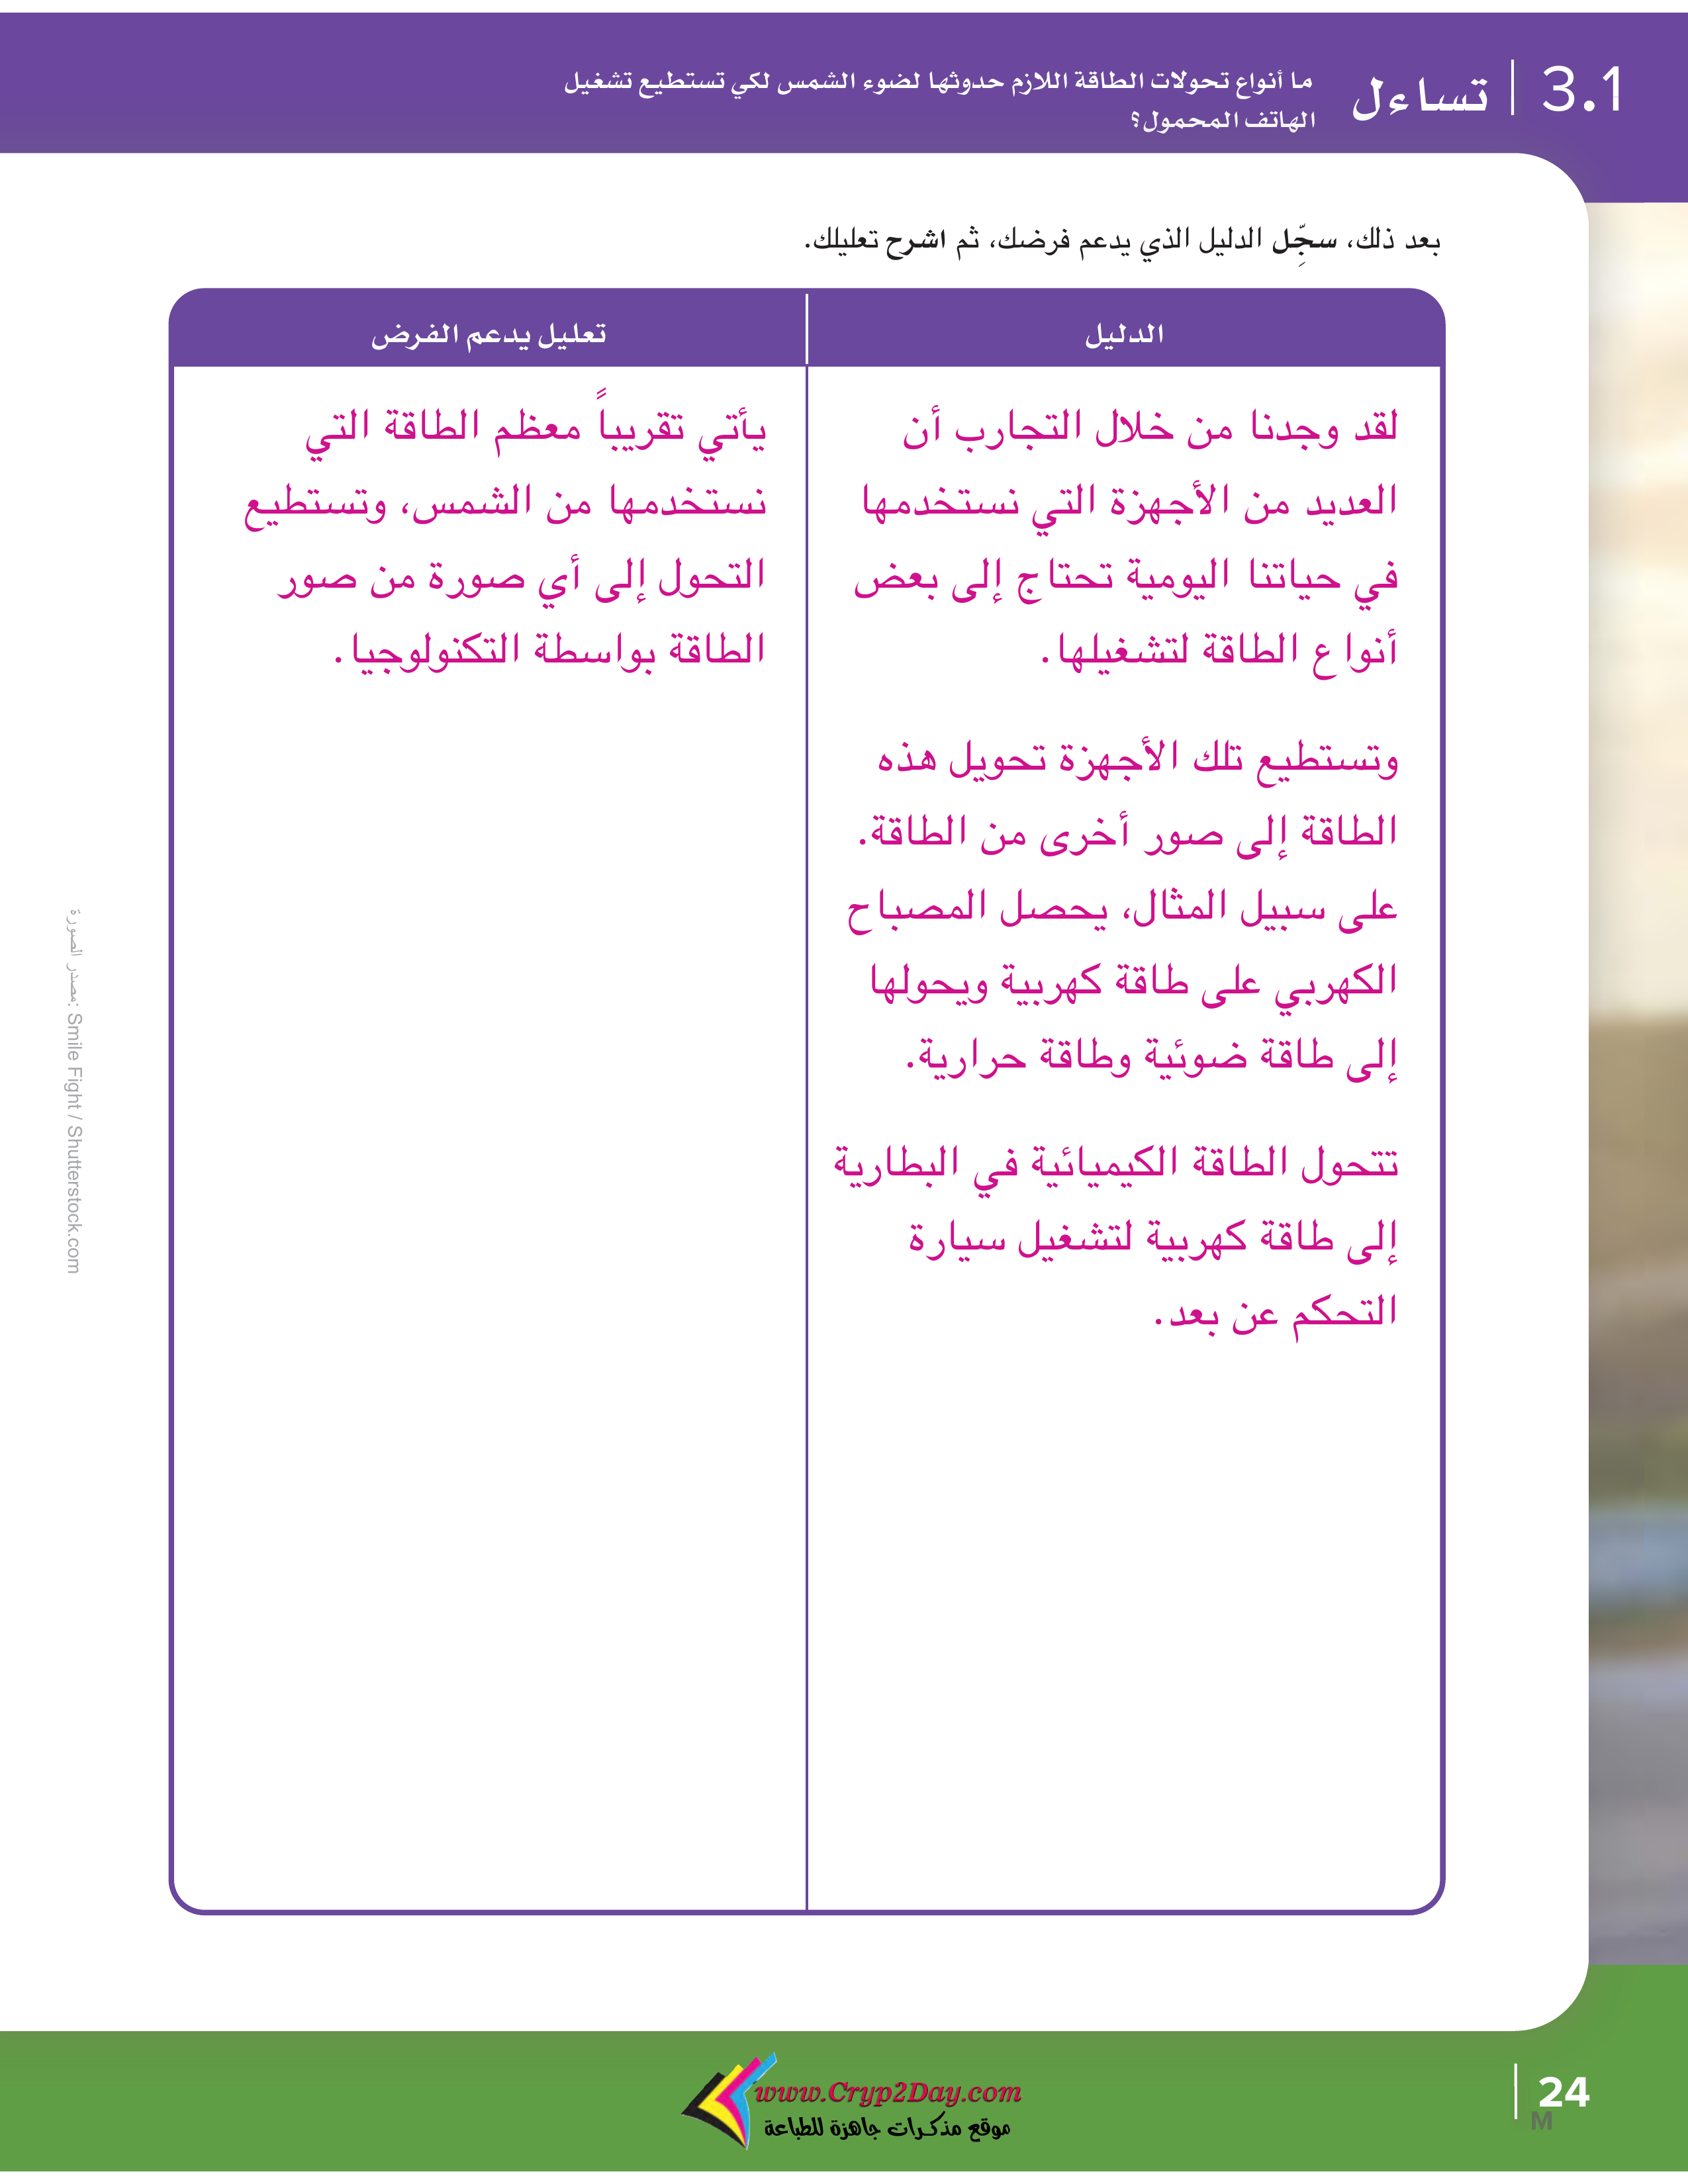 3.1 | تساءل
ما أنواع تحولات الطاقة اللازم حدوثها لضوء الشمس لكي تستطيع تشغيل
الهاتف المحمول؟
بعد ذلك، سجِّل الدليل الذي يدعم فرضك، ثم اشرح تعليلك.
الدليل
لقد وجدنا من خلال التجارب أن
العديد من الأجهزة التي نستخدمها
في حياتنا اليومية تحتاج إلى بعض
أنواع الطاقة لتشغيلها.
وتستطيع تلك الأجهزة تحويل هذه
الطاقة إلى صور أخرى من الطاقة.
على سبيل المثال، يحصل المصباح
الكهربي على طاقة كهربية ويحولها
إلى طاقة ضوئية وطاقة حرارية.
تتحول الطاقة الكيميائية في البطارية
إلى طاقة كهربية لتشغيل سيارة
التحكم عن بعد.
تعليل يدعم الفرض
يأتي تقريباً معظم الطاقة التي
نستخدمها من الشمس، وتستطيع
التحول إلى أي صورة من صور
الطاقة بواسطة التكنولوجيا.
مصدر الصورة: Smile Fight / Shutterstock.com
24
M
www.Cryp2Day.com
موقع مذكرات جاهزة للطباعة